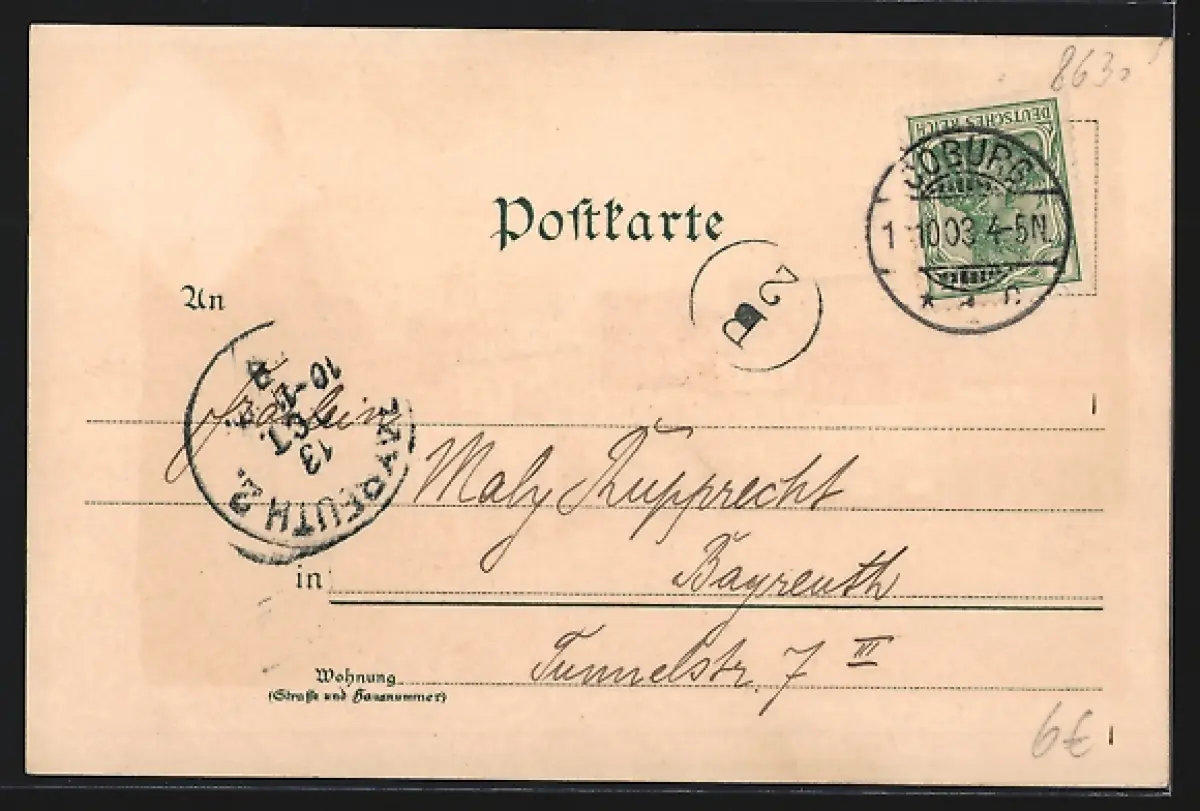 8630
DEUTSCHES REICH
COBURG
1 10 03 4-5N
* 2 c
Postkarte
2 B
An
Fräulein
10-11
OCT.
13
BAYREUTH 2.
Maly Rupprecht
in Bayreuth
Wohnung Tunnelstr. 7 III
(Straße und Hausnummer)
6€